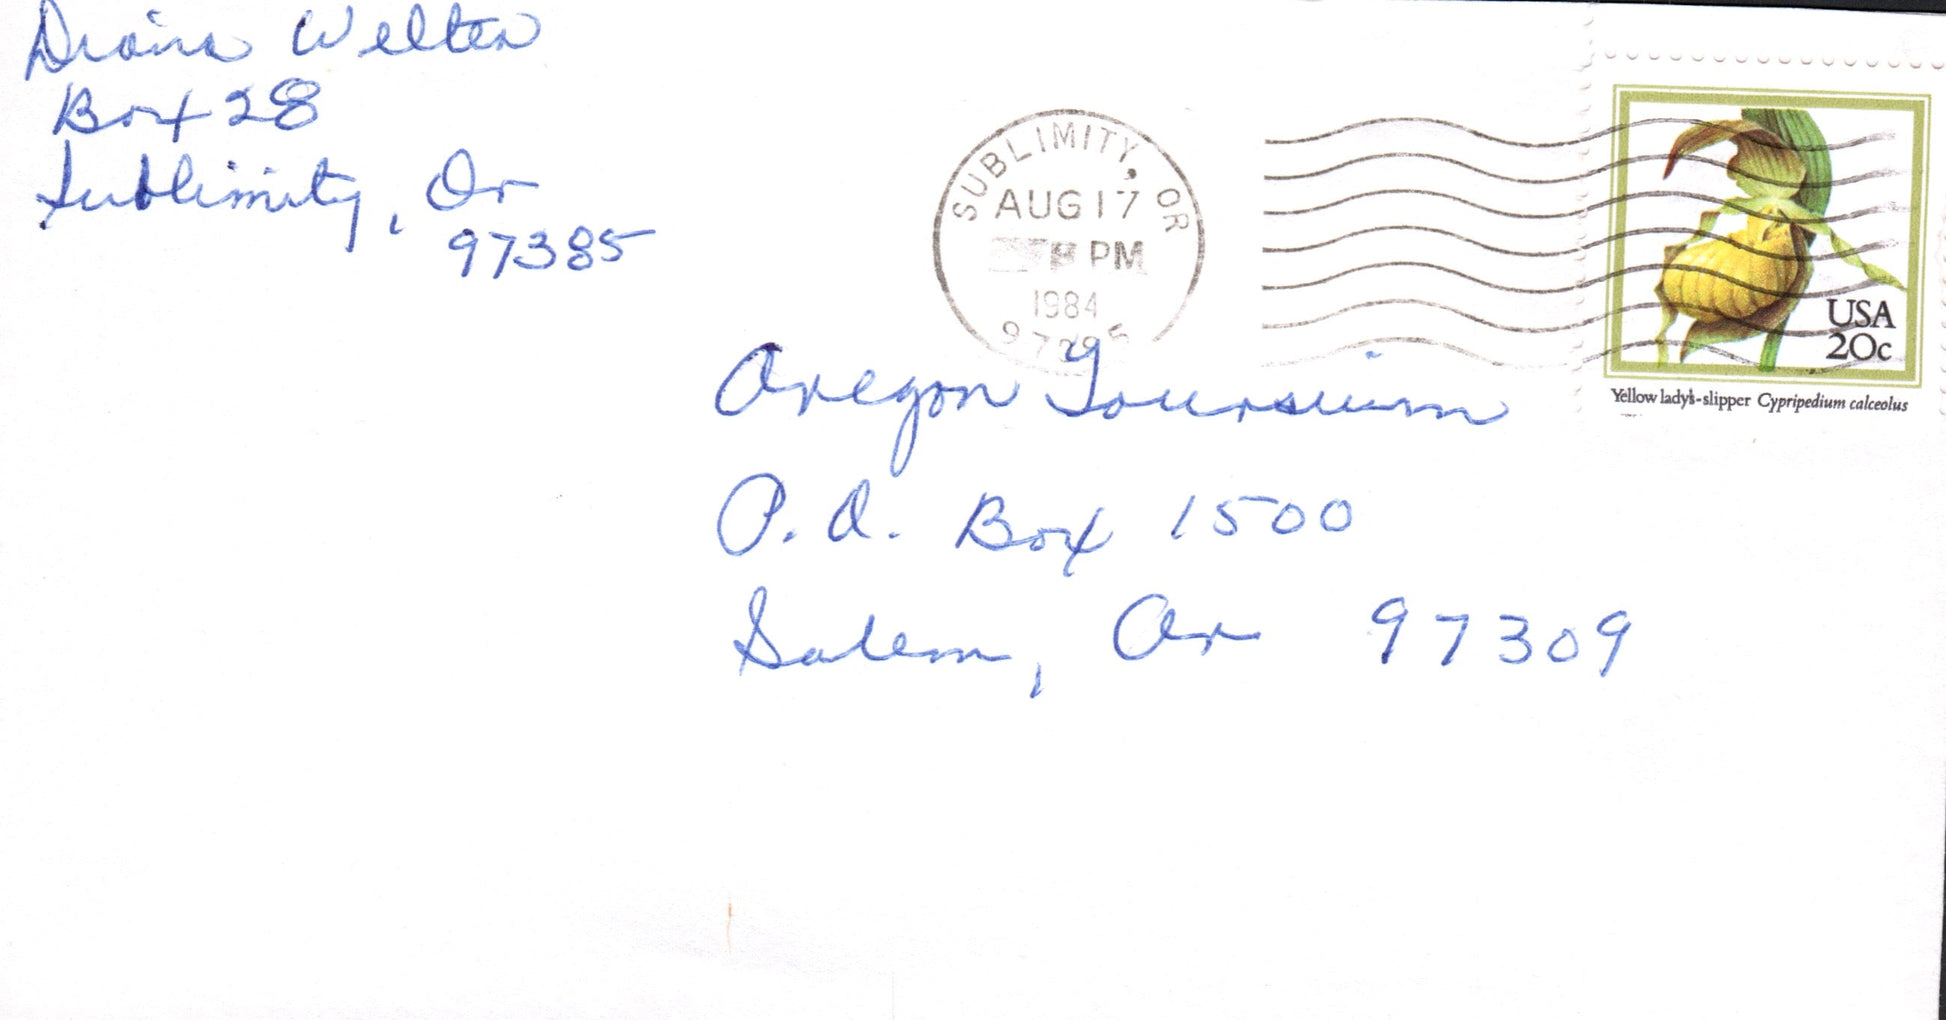 Diana Welter
Box 28
Sublimity, Or
97385
SUBLIMITY, OR
AUG 17
PM
1984
USA
20c
Yellow lady's-slipper Cypripedium calceolus
Oregon Toursium
P.O. Box 1500
Salem, Or 97309